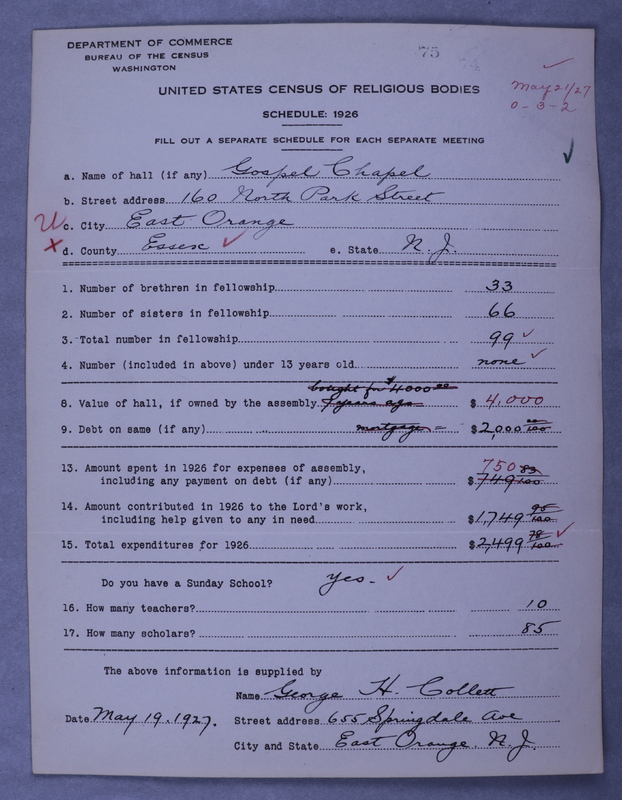 DEPARTMENT OF COMMERCE
BUREAU OF THE CENSUS
WASHINGTON
75
74
UNITED STATES CENSUS OF RELIGIOUS BODIES
May 21/27
0-3-2
SCHEDULE: 1926
FILL OUT A SEPARATE SCHEDULE FOR EACH SEPARATE MEETING
a. Name of hall (if any) Gospel Chapel
b. Street address 160 North Park Street
U c. City East Orange
x d. County Essex ✓ e. State N. J.
1. Number of brethren in fellowship 33
2. Number of sisters in fellowship 66
3. Total number in fellowship 99 ✓
4. Number (included in above) under 13 years old none ✓
bought for $4000 00
8. Value of hall, if owned by the assembly years ago $ 4,000
9. Debt on same (if any) mortgage = $2,000 00/100
13. Amount spent in 1926 for expenses of assembly, 750
including any payment on debt (if any) $ 749 83/100
14. Amount contributed in 1926 to the Lord's work,
including help given to any in need $1,749 95/100
15. Total expenditures for 1926 $2,499 78/100 ✓
Do you have a Sunday School? yes - ✓
16. How many teachers? 10
17. How many scholars? 85
The above information is supplied by
Name George H. Collett
Date May 19, 1927. Street address 655 Springdale Ave
City and State East Orange. N. J.